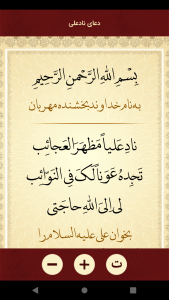 دعای نادعلی
بِسْمِ اللهِ الرَّحْمنِ الرَّحِيْمِ
به نام خداوند بخشنده مهربان
نادِ عَلیاً مَظهَرَ العَجائِب
تَجِدهُ عَونَاً لَکَ فِی النَّوَائِب
لی اِلیَ اللهِ حاجَتی
بخوان علی علیه السلام را
ت